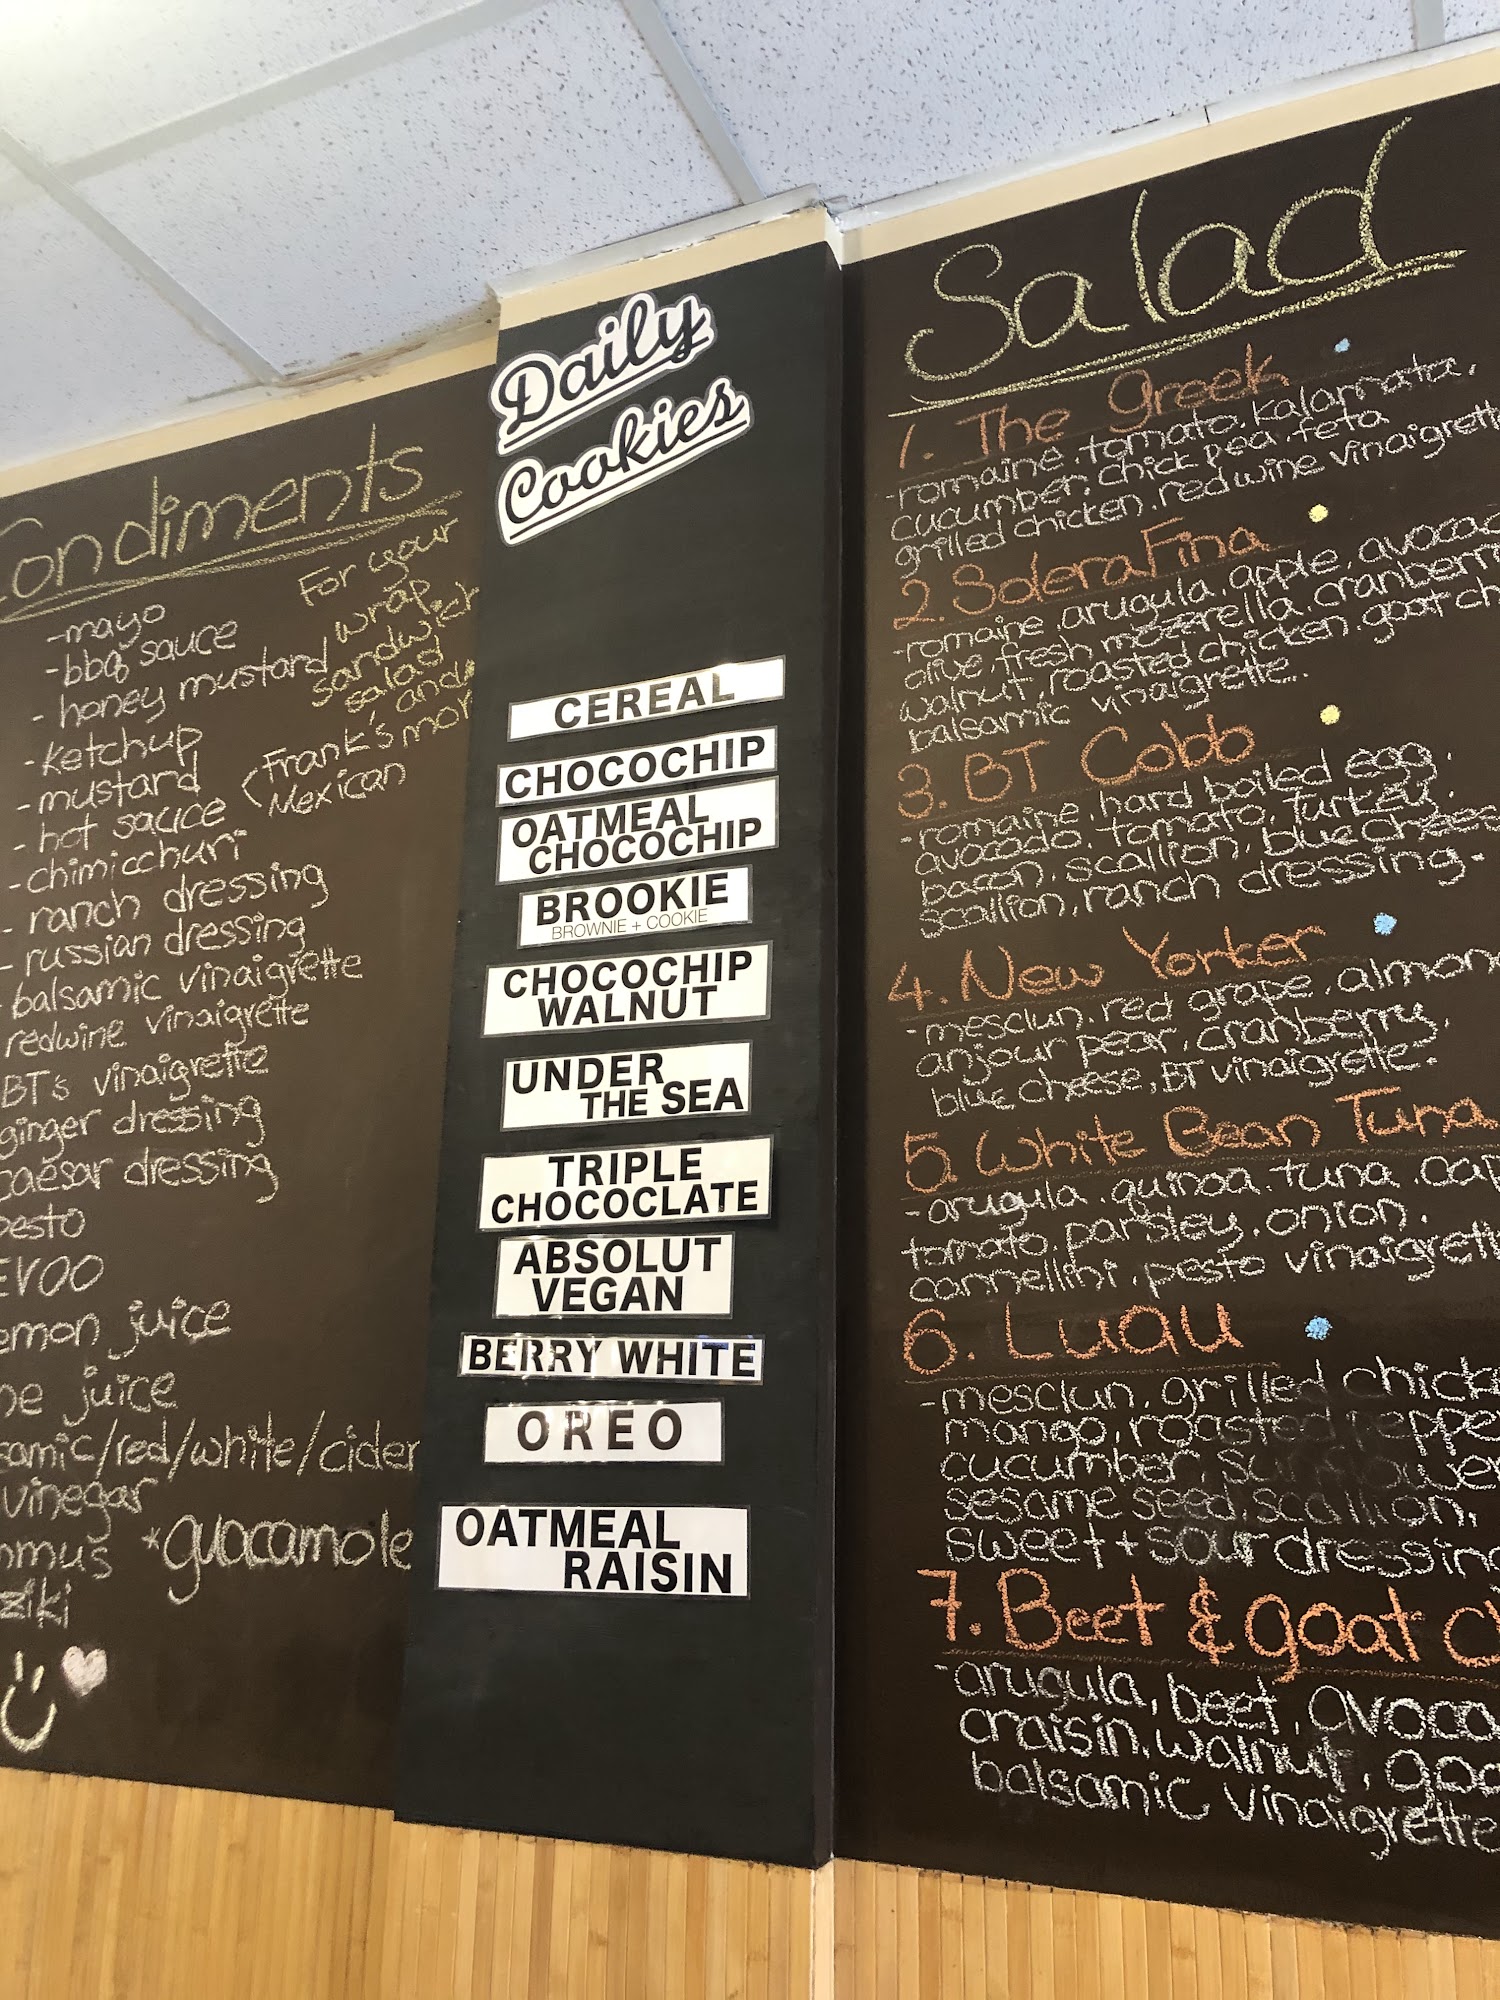 Condiments
For your
wrap,
sandwich
salad
, and
mor
-mayo
-bbq sauce
- honey mustard
-ketchup
-mustard
- hot sauce (Frank's
Mexican
-chimicchuri
- ranch dressing
- russian dressing
- balsamic vinaigrette
redwine vinaigrette
BT's vinaigrette
ginger dressing
caesar dressing
pesto
EVOO
emon juice
ne juice
samic/red/white/cider
vinegar
mmus *guacamole
ziki
Daily
Cookies
CEREAL
CHOCOCHIP
OATMEAL
CHOCOCHIP
BROOKIE
BROWNIE + COOKIE
CHOCOCHIP
WALNUT
UNDER
THE SEA
TRIPLE
CHOCOCLATE
ABSOLUT
VEGAN
BERRY WHITE
OREO
OATMEAL
RAISIN
Salad
1. The Greek
-romaine, tomato, kalamata,
cucumber, chick pea, feta
grilled chicken, redwine vinaigrette
2. SoleraFina
-romaine, arugula, apple, avocad
olive, fresh mozzerella, cranberr
walnut, roasted chicken, goat ch
balsamic vinaigrette.
3. BT Cobb
-romaine, hard boiled egg,
avocado, tomato, turkey,
bacon, scallion, blue chees
scallion, ranch dressing.
4. New Yorker
-mesclun, red grape, almon
anjour pear, cranberry,
blue cheese, BT vinaigrette.
5. White Bean Tuna
-arugula, quinoa, tuna, cap
tomato, parsley, onion,
cannellini, pesto vinaigrett
6. Luau
-mesclun, grilled chick
mango, roasted peppe
cucumber, sunflower
sesame seed, scallion,
sweet + sour dressing
7. Beet & goat c
-arugula, beet, avoca
craisin, walnut, goa
balsamic vinaigrette